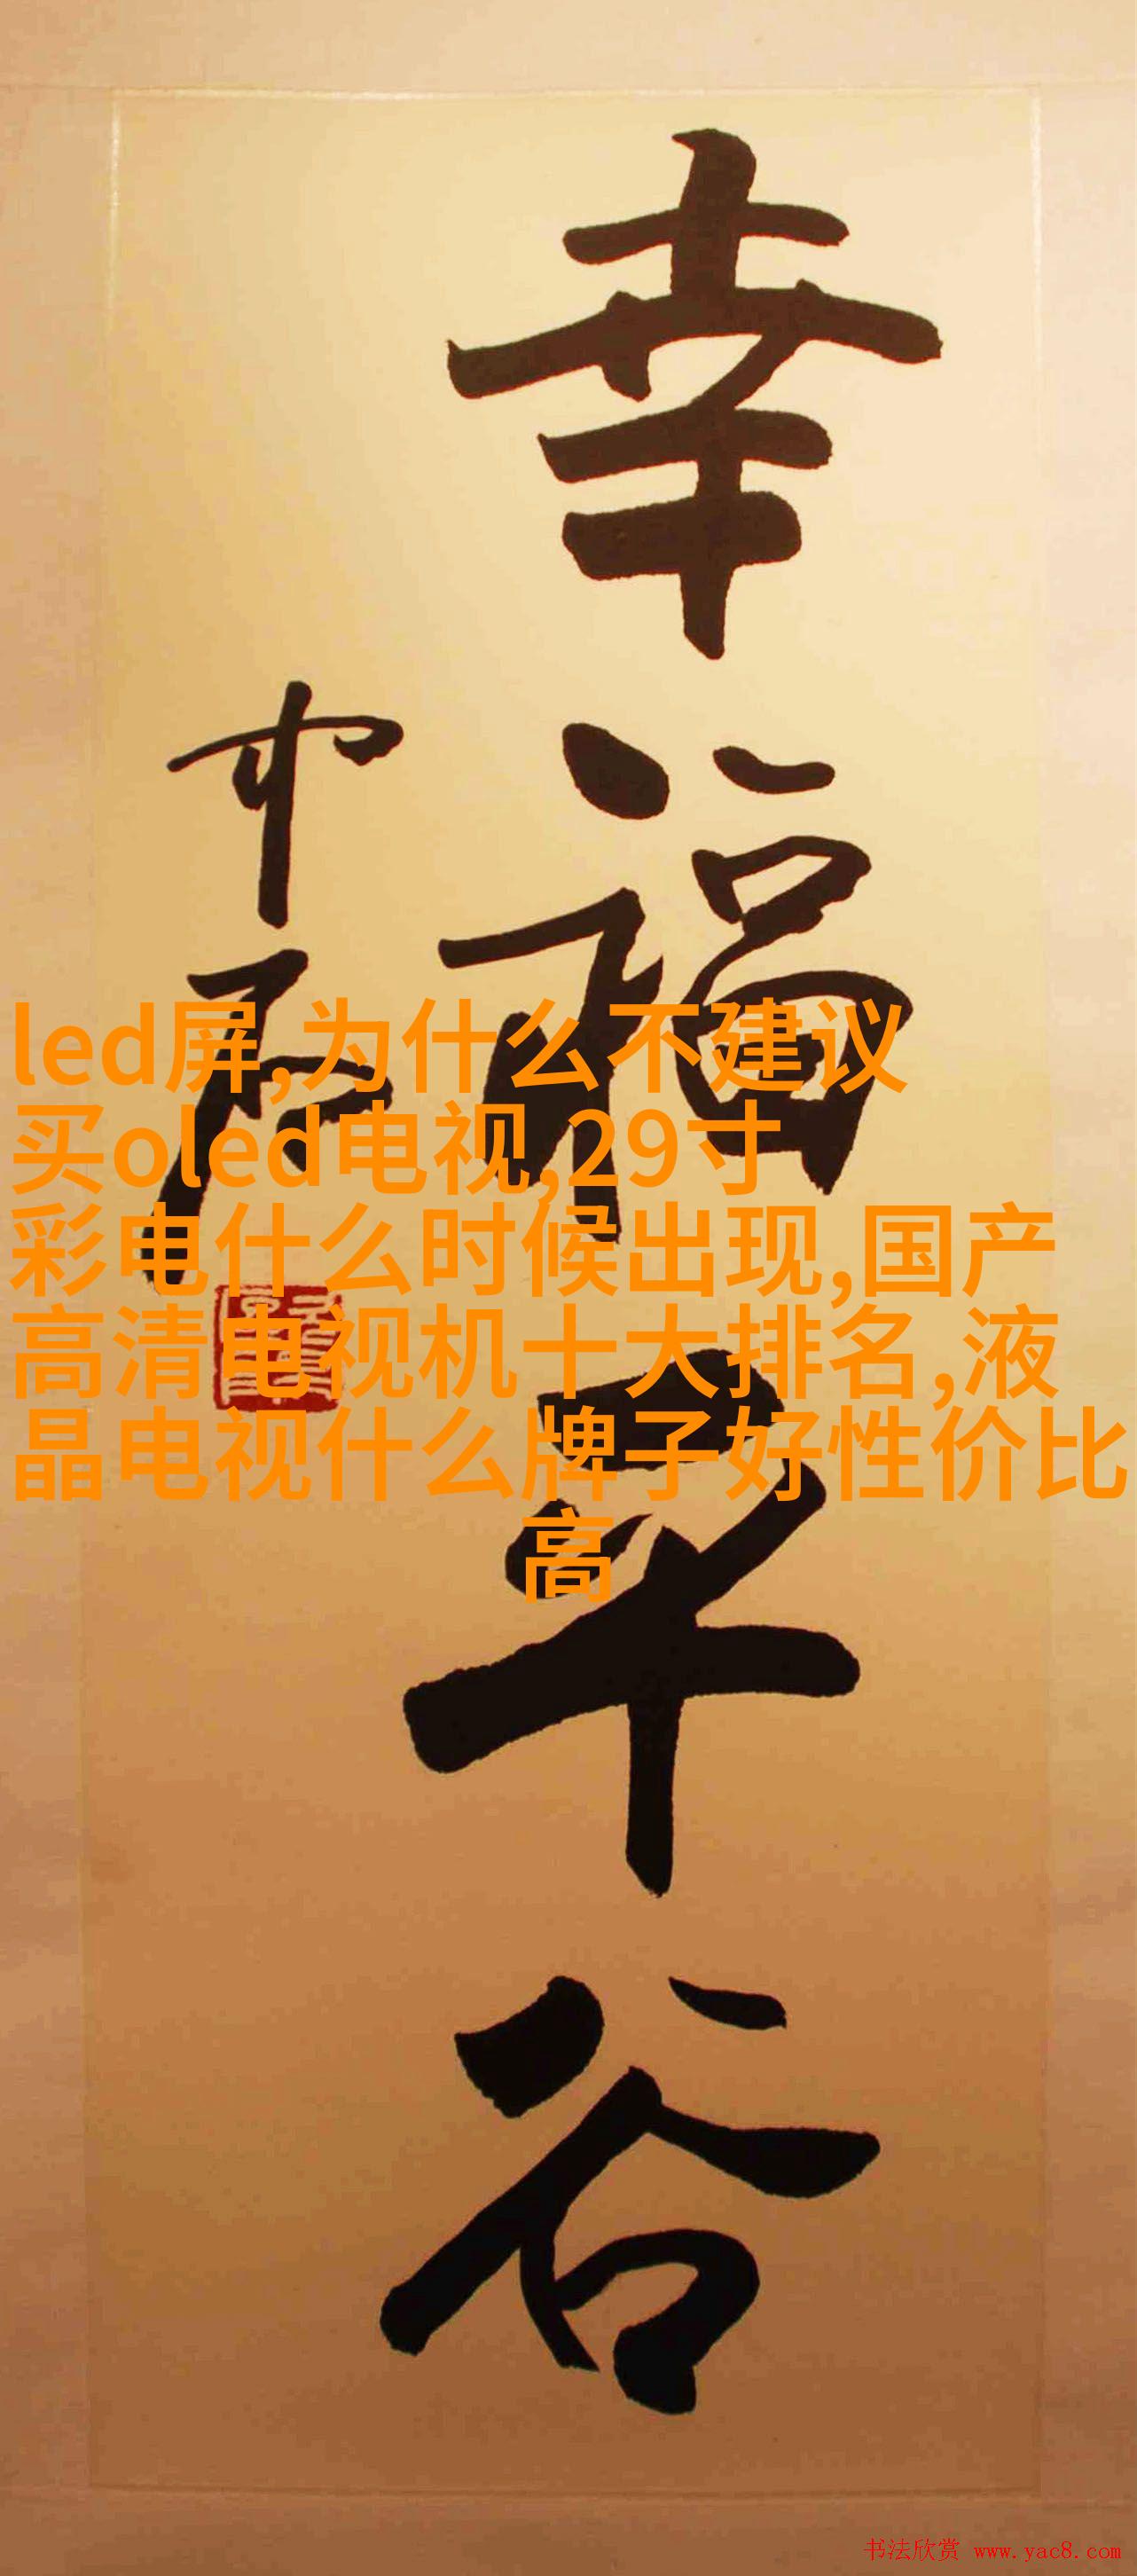 幸福平谷
led屏,为什么不建议
买oled电视,29寸
彩电什么时候出现,国产
高清电视机十大排名,液
晶电视什么牌子好性价比
高
书法欣赏 www.yac8.com